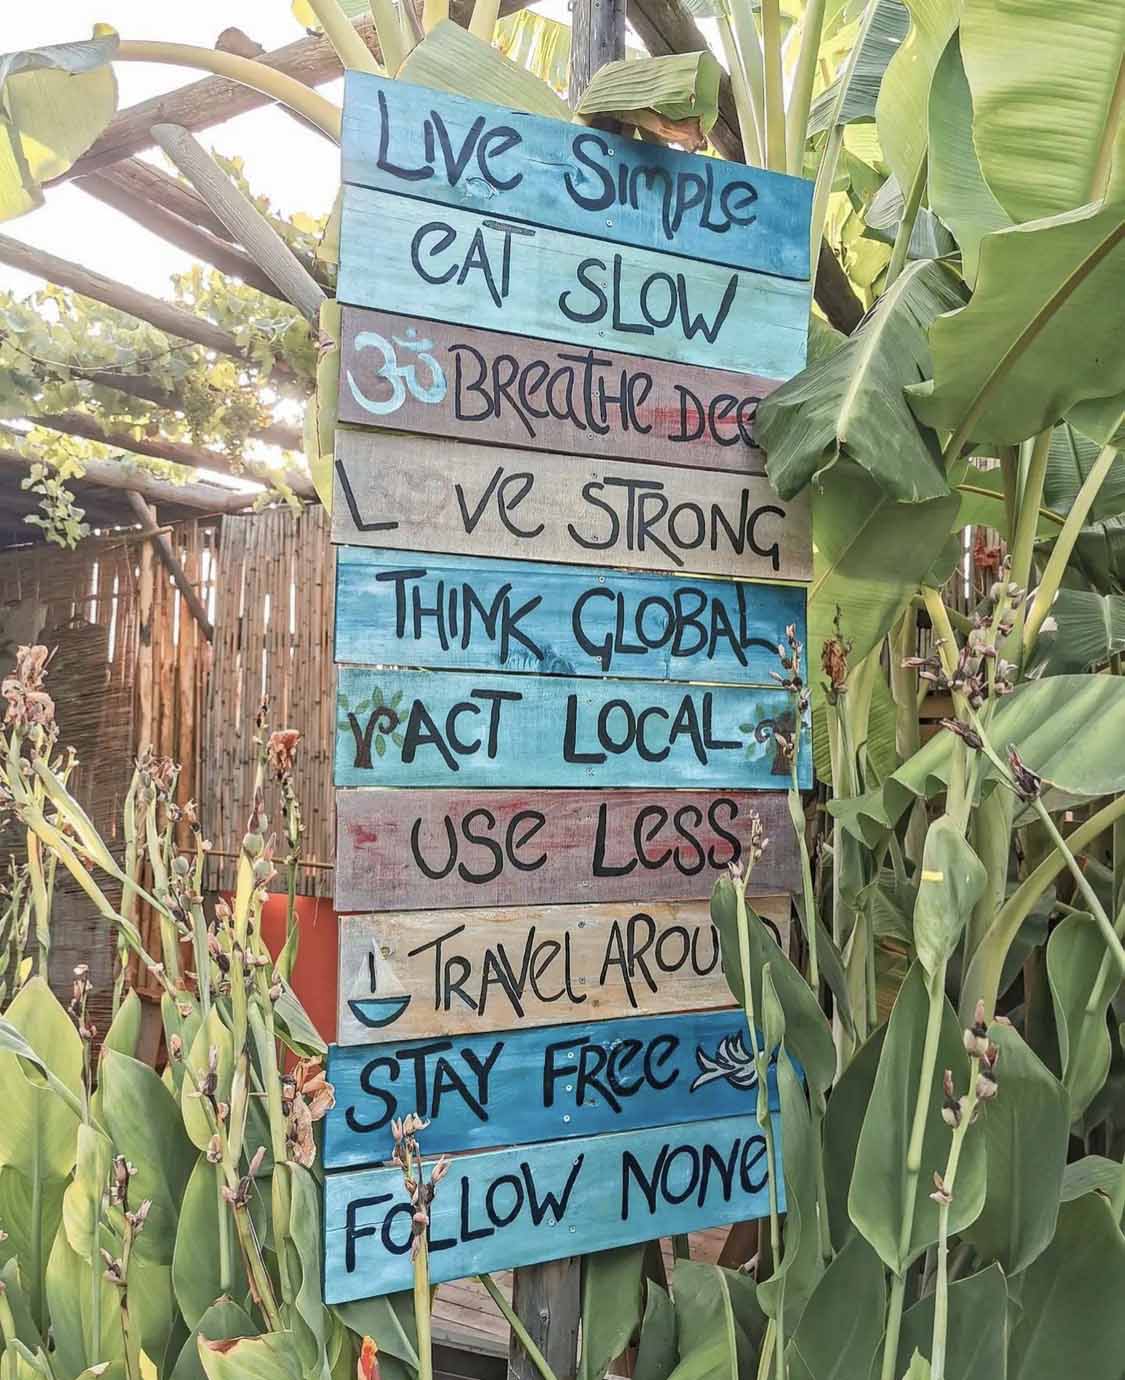 LIVE SIMPLE
EAT SLOW
ॐ BREATHE DEE
LOVE STRONG
THINK GLOBAL
ACT LOCAL
USE LESS
TRAVEL AROU
STAY FREE
FOLLOW NONE